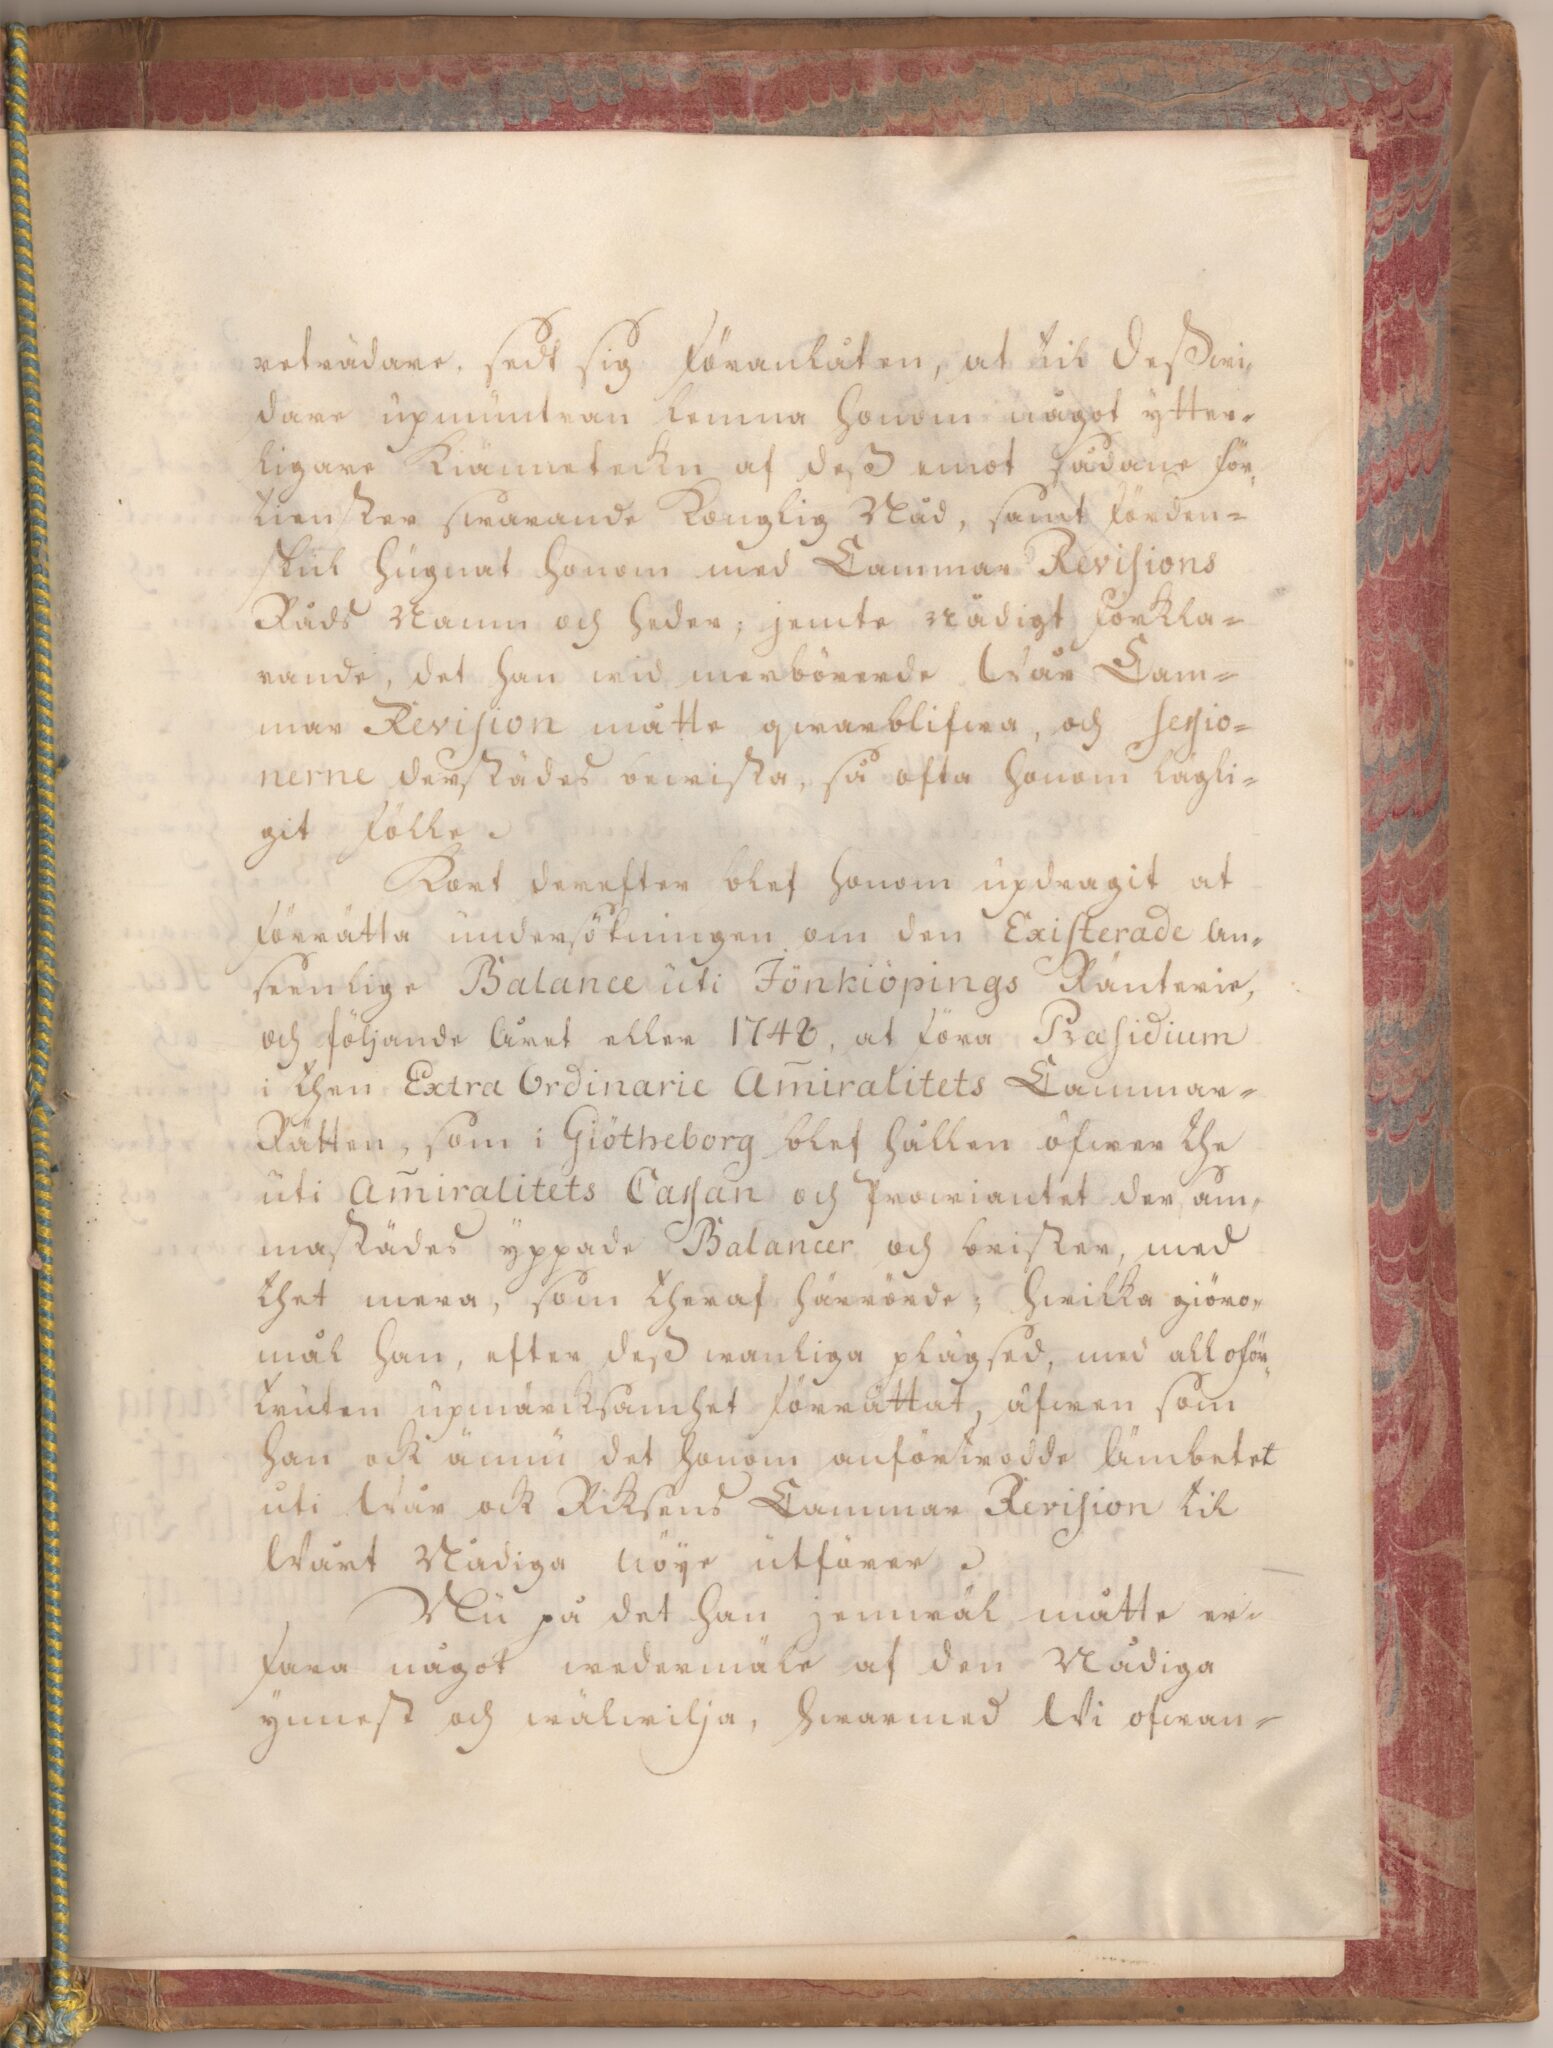 reträdare, sedt sig föranlåten, at til Desswi-
dare upmuntran lemna honom något ytter-
ligare Kiännetekn af dess emot sådane för-
tienster swarande Konglig Nåd, samt förden-
skul hugnat honom med Cammar Revisions
Råds Namn och heder; jemte nådigt förkla-
rande, det han wid merbörerde Wår Cam-
mar Revision måtte qwarblifwa, och sessio-
nerne derstädes bewista, så ofta honom lägli-
git fölle.
Kort derefter blef honom updragit at
förrätta undersökningen om den Existerade an-
seenlige Balance uti Jönkiöpings Ränterie,
och följande året eller 1748, at föra Præsidium
i then Extra Ordinarie Am̄iralitets Cammar-
Rätten, som i Giötheborg blef hållen öfwer the
uti Am̄iralitets Cassan och Prowiantet der sam-
mastädes yppade Balancer och brister, med
thet mera, som theraf härrörde; hwilka giöro-
mål han, efter dess wanliga plägsed, med all oför-
truten upmärcksamhet förrättat, äfwen som
han ock ännu det honom anförtrodde Ämbetet
uti Wår ock Riksens Cammar Revision til
Wårt Nådiga nöye utförer.
Nu på det han jemwäl måtte er-
fara något wedermäle af den Nådiga
ynnest och wälwilja, hwarmed Wi ofwan-